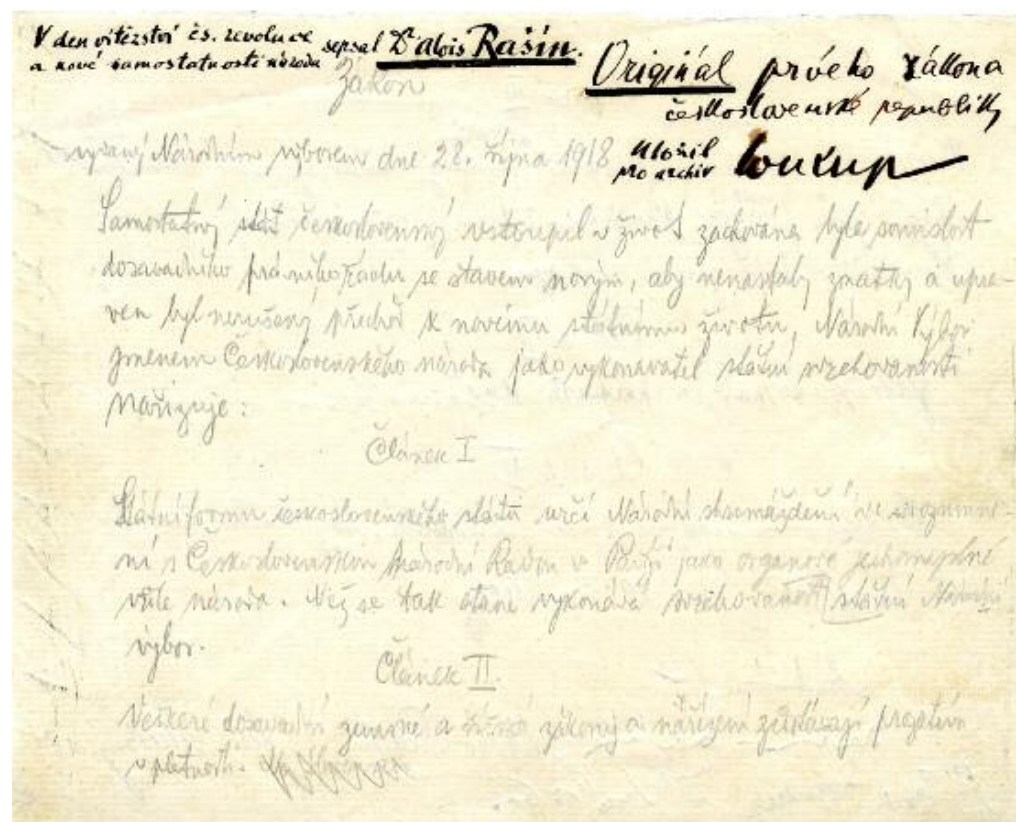 V den vítězství čs. revoluce
a nové samostatnosti národa
sepsal Dr Alois Rašín.
Originál prvého zákona
československé republiky
uložil
pro archiv Soukup
Zákon
vydaný Národním výborem dne 28. října 1918
Samostatný stát československý vstoupil v život zachována byla souvislost
dosavadního právního řádu se stavem novým, aby nenastaly zmatky a upra-
ven byl nerušený přechod k novému státnímu životu, Národní Výbor
jmenem Československého národa jako vykonavatel státní svrchovanosti
nařizuje:
Článek I
Státní formu československého státu určí Národní shromáždění ve srozumě-
ní s Československou Národní Radou v Paříži jako organové jednomyslné
vůle národa. Než se tak stane vykonává svrchovanost státní Národní
výbor.
Článek II.
Veškeré dosavadní zemské a říšské zákony a nařízení zůstávají prozatím
v platnosti.